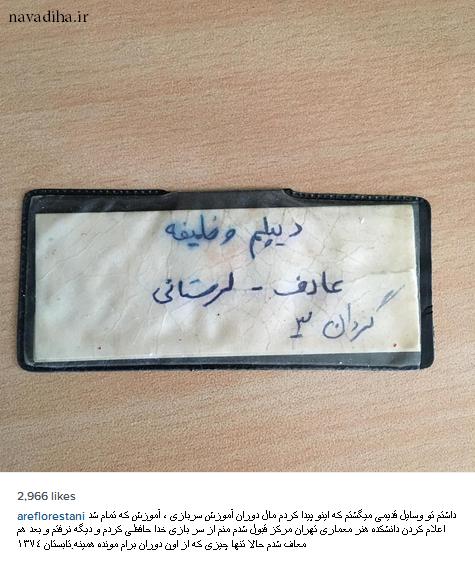 navadiha.ir
دیپلم وظیفه
عارف - لرستانی
گردان ۳
2,966 likes
areflorestani داشتم تو وسایل قدیمی میگشتم که اینو پیدا کردم مال دوران آموزش سربازی ، آموزش که تمام شد
اعلام کردن دانشکده هنر معماری تهران مرکز قبول شدم منم از سر بازی خدا حافظی کردم و دیگه نرفتم و بعد هم
معاف شدم حالا تنها چیزی که از اون دوران برام مونده همینه.تابستان ١٣٧٤